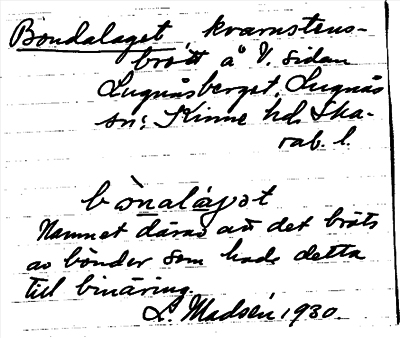 Bondalaget, kvarnstens-
brott å V. sidan
Lugnåsberget, Lugnås
sn; Kinne hd. Ska-
rab. l.
bònalágət
Namnet därav att det bröts
av bönder som hade detta
till binäring.
L. Madsén 1930.